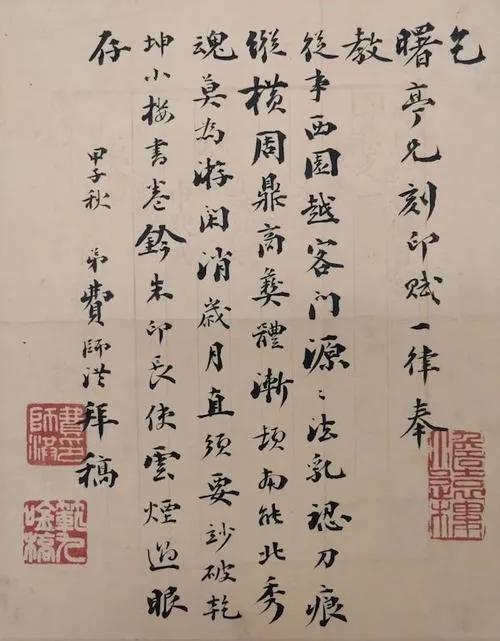 乞
曙亭兄刻印賦一律奉
教
從事西園越客門源〻法乳認刀痕
縱橫周鼎商彝體漸頓南能北秀
魂莫為游閑消歲月直須要破乾
坤小樓書卷鈐朱印長使雲煙過眼
存
甲子秋 弟費師洪拜稿
費印師洪
範九唫稿